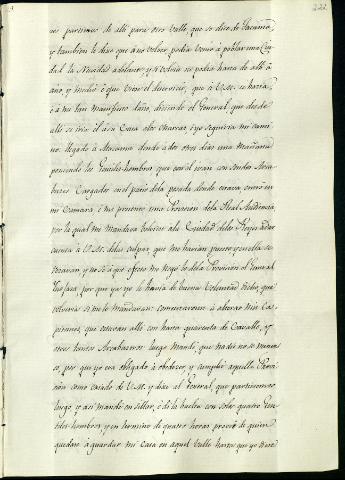 222
nos partimos de alli para otro Valle que se dice de Tacama,
y tambien le dixe que à no volver, podia venir à poblar una Ciu-
dad la Navidad adelante, y si volvia no podia hasta de alli à
año, y medio; è que viese el deservicio, que à V.M. se hacia,
è à mi tan manifiesto daño, diciendo el General, que desde
alli se iria èl à su Casa à los Charcas, è yo seguiria mi cami-
no. llegado à Atacama donde à dos otros dias una Mañana
poniendo los Gentiles-hombres que con èl ivan con sendos Arca-
buces Cargados en el patio de la posada donde estava, entrò en
mi Camara, è me presentò una Provision de la Real Audiencia
por la qual me Mandava bolviese à la Ciudad de los Reyes à dar
cuenta à V.M. de las culpas, que me havian puesto, y en ella se
decaravan, y no sè à que efecto me llegò la dela Provision el General
Inojosa, por que ya yo le havia de buena Voluntad dicho, que
volveria si me lo Mandavan: comenzaronse à alterar mis Ca-
pitanes, que estavan alli con hasta quarenta de Cavallo, y
otros tantos Arcabuceros: luego Mandè, que nadie no se menea-
se, por que yo era obligado à obedecer, y cumplir aquella Provi-
sion como criado de V.M. y dixe al General, que partiesemos
luego, y asi mandè ensillar, è dì la buelta con solos quatro Gen-
tiles-hombres, y en termino de quatro horas proveì de quien
quedase à guardar mi Casa en aquel Valle hasta que yo diese